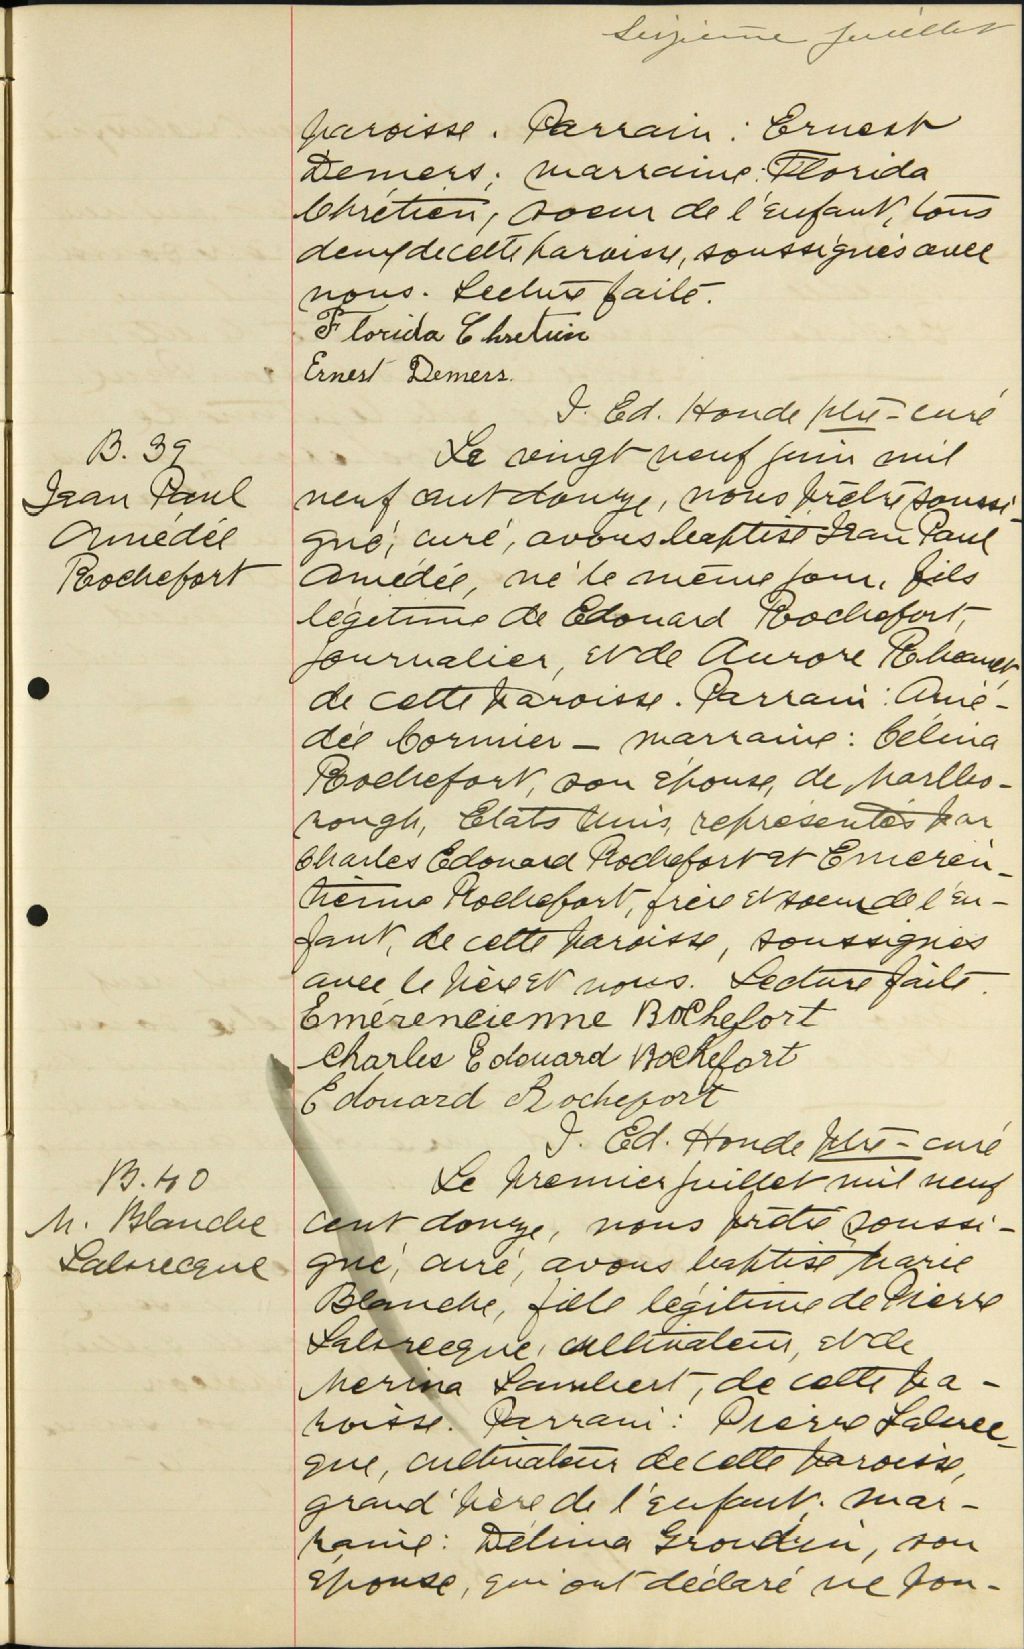 Seizième feuillet
paroisse. Parrain: Ernest
Demers; marraine: Florida
Chrétien, soeur de l'enfant, tous
deux de cette paroisse, soussignés avec
nous. Lecture faite.
Florida Chretien
Ernest Demers.
J. Ed. Houde ptre-curé
B. 39
Jean Paul
Amédée
Rochefort
Le vingt neuf juin mil
neuf cent douze, nous prêtre soussi-
gné, curé, avons baptisé Jean Paul
Amédée, né le même jour, fils
légitime de Edouard Rochefort,
journalier, et de Aurore
de cette paroisse. Parrain: Amé-
dée Cormier - marraine: Célina
Rochefort, son épouse, de Marlbo-
rough, Etats Unis, représentés par
Charles Edouard Rochefort et Emeren-
tienne Rochefort, frère et soeur de l'en-
fant, de cette paroisse, soussignés
avec le père et nous. Lecture faite.
Emérencienne Rochefort
Charles Edouard Rochefort
Edouard Rochefort
J. Ed. Houde ptre-curé
B. 40
M. Blanche
Labrecque
Le premier juillet mil neuf
cent douze, nous prêtre soussi-
gné, curé, avons baptisé Marie
Blanche, fille légitime de Pierre
Labrecque, cultivateur, et de
Merina Lambert, de cette pa-
roisse. Parrain: Pierre Labrec-
que, cultivateur de cette paroisse,
grand'père de l'enfant; mar-
raine: Délima Grondin, son
épouse, qui ont déclaré ne pou-